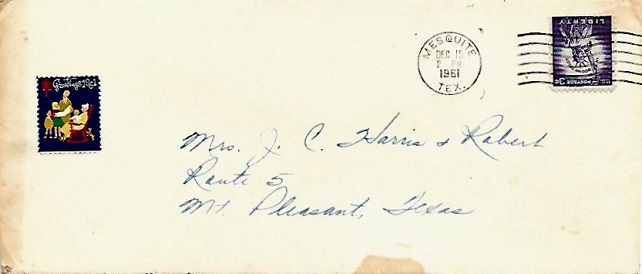 Greetings 1961
MESQUITE
DEC 15
2 PM
1961
TEX.
LIBERTY
U.S. POSTAGE 3¢
Mrs. J. C. Harris & Robert
Route 5
Mt. Pleasant, Texas